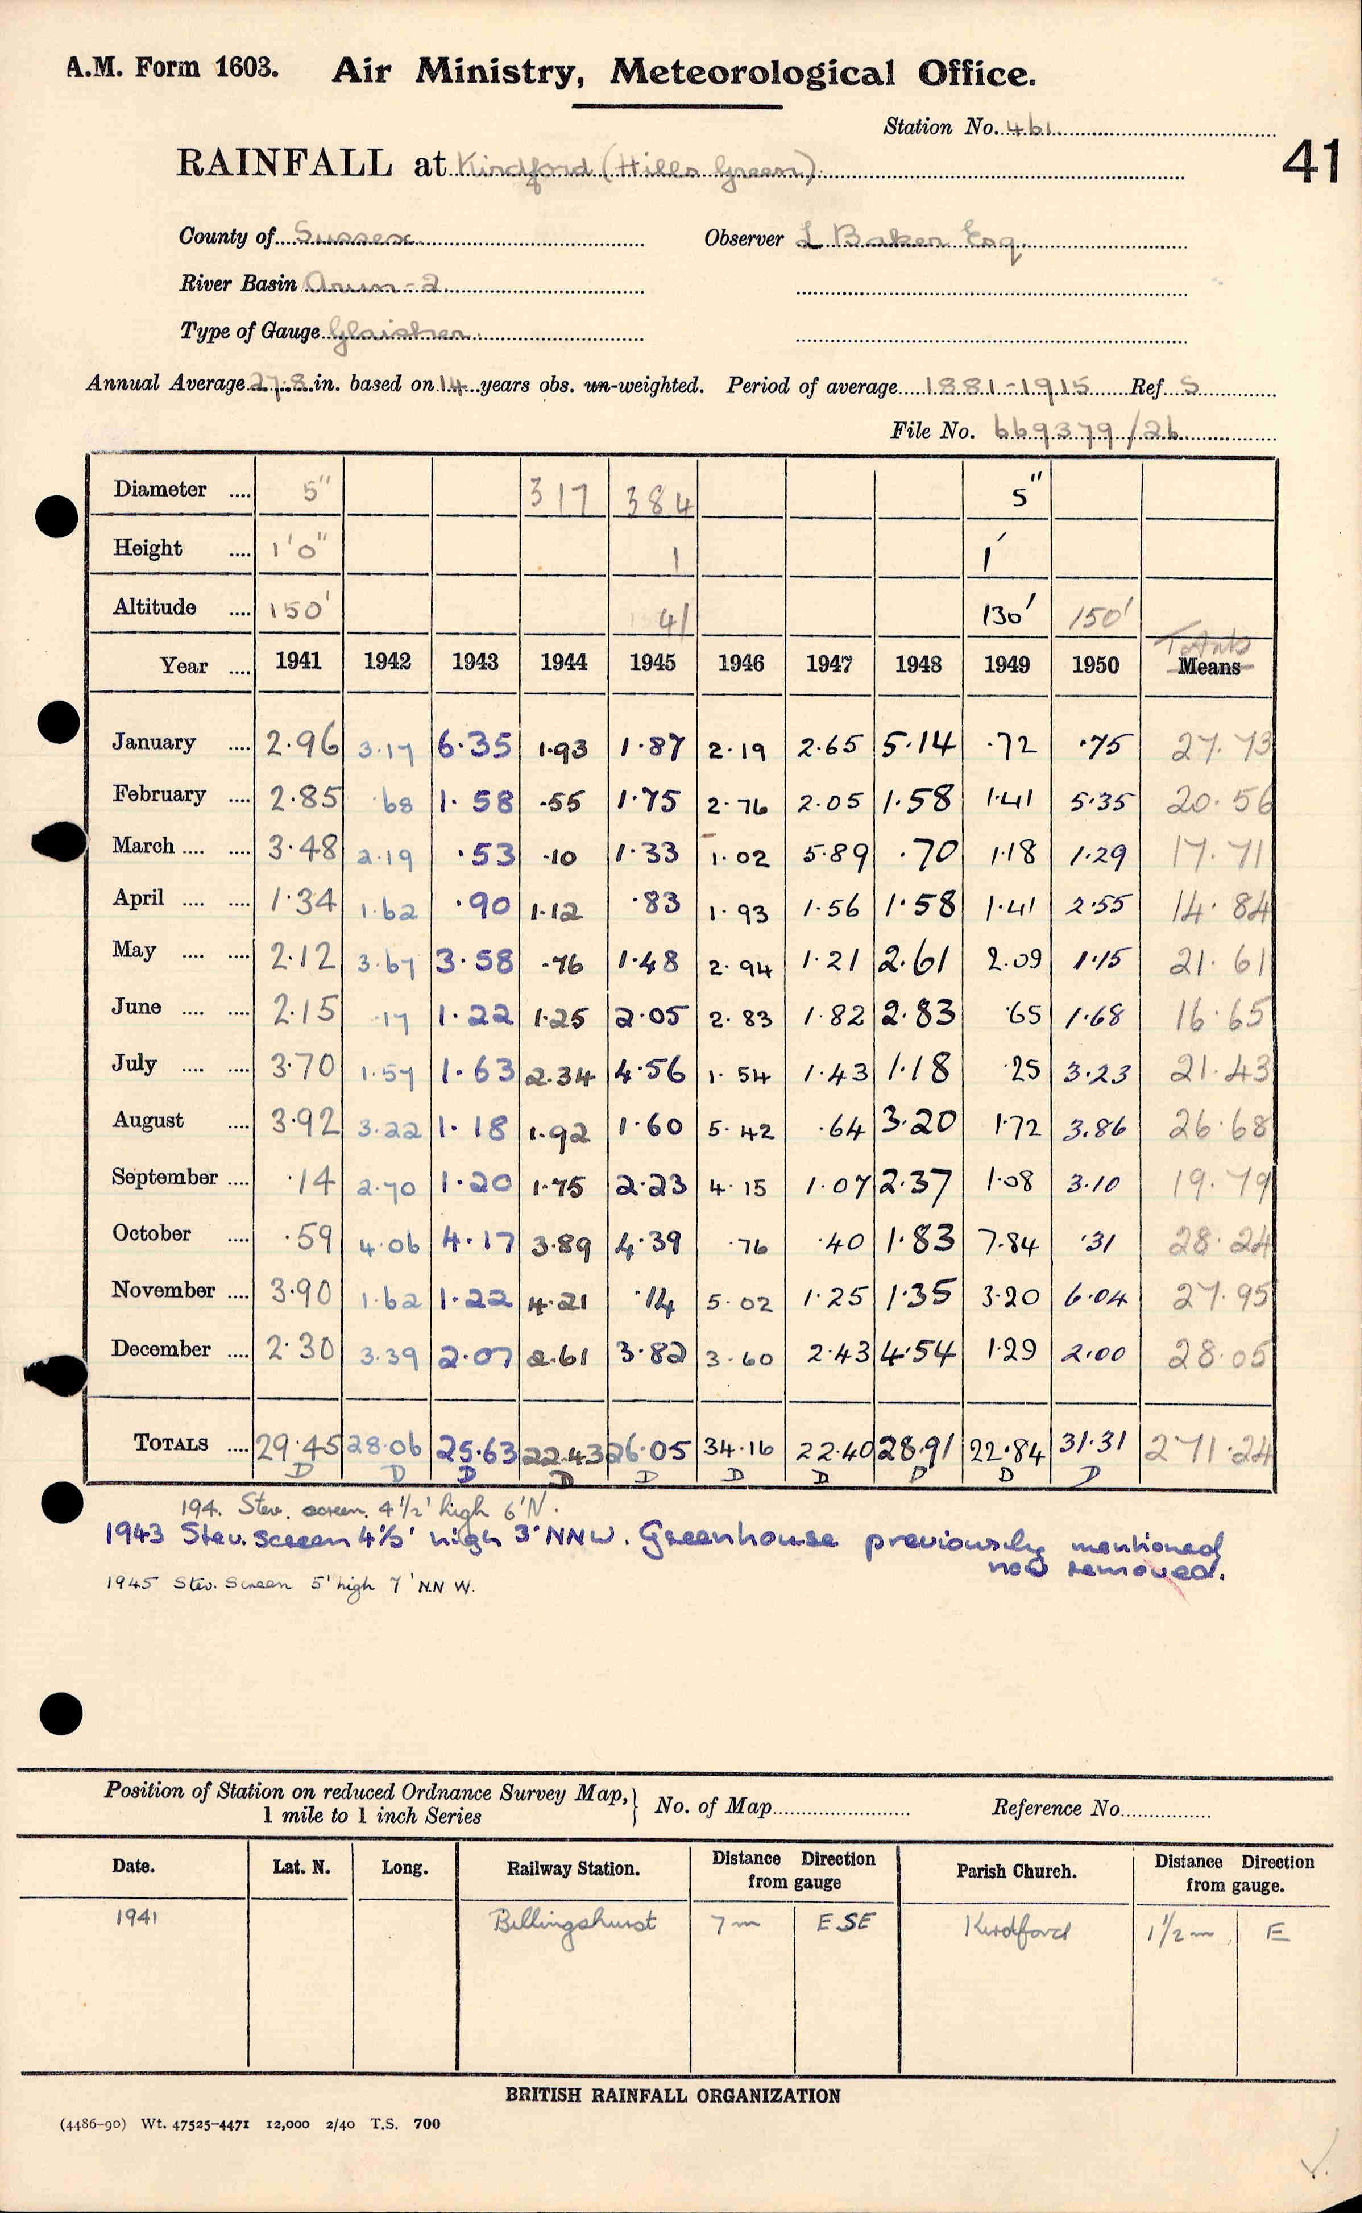 A.M. Form 1603. Air Ministry, Meteorological Office.
Station No. 461
41
RAINFALL at Kirdford (Hills Green)
County of Sussex Observer L Baker Esq
River Basin Arun-2
Type of Gauge Glaisher
Annual Average 27.8 in. based on 14 years obs. un-weighted. Period of average 1881-1915 Ref. S
File No. 669379/26
Diameter .... 5" 317 384 5"
Height .... 1'0" 1 1'
Altitude .... 150' 41 130' 150'
Totals
Year .... 1941 1942 1943 1944 1945 1946 1947 1948 1949 1950 Means
January .... 2.96 3.17 6.35 1.93 1.87 2.19 2.65 5.14 .72 .75 27.73
February .... 2.85 .68 1.58 .55 1.75 2.76 2.05 1.58 1.41 5.35 20.56
March .... .... 3.48 2.19 .53 .10 1.33 1.02 5.89 .70 1.18 1.29 17.71
April .... .... 1.34 1.62 .90 1.12 .83 1.93 1.56 1.58 1.41 2.55 14.84
May .... .... 2.12 3.67 3.58 .76 1.48 2.94 1.21 2.61 2.09 1.15 21.61
June .... .... 2.15 .17 1.22 1.25 2.05 2.83 1.82 2.83 .65 1.68 16.65
July .... .... 3.70 1.57 1.63 2.34 4.56 1.54 1.43 1.18 .25 3.23 21.43
August .... 3.92 3.22 1.18 1.92 1.60 5.42 .64 3.20 1.72 3.86 26.68
September .... .14 2.70 1.20 1.75 2.23 4.15 1.07 2.37 1.08 3.10 19.79
October .... .59 4.06 4.17 3.89 4.39 .76 .40 1.83 7.84 .31 28.24
November .... 3.90 1.62 1.22 4.21 .14 5.02 1.25 1.35 3.20 6.04 27.95
December .... 2.30 3.39 2.07 2.61 3.82 3.60 2.43 4.54 1.29 2.00 28.05
TOTALS .... 29.45 28.06 25.63 22.43 26.05 34.16 22.40 28.91 22.84 31.31 271.24
D D D D D D D D D D
194. Stev. screen. 4 1/2' high 6'N.
1943 Stev. screen 4 1/3' high 3' NNW. Greenhouse previously mentioned
now removed.
1945 Stev. Screen 5' high 7' NNW.
Position of Station on reduced Ordnance Survey Map,} No. of Map Reference No.
1 mile to 1 inch Series
Date. Lat. N. Long. Railway Station. Distance Direction from gauge Parish Church. Distance Direction from gauge.
1941 Billingshurst 7m ESE Kirdford 1 1/2 m E
BRITISH RAINFALL ORGANIZATION
(4486-90) Wt. 47525-4471 12,000 2/40 T.S. 700